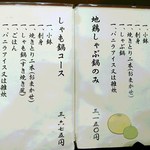 地鶏しゃぶ鍋のみ
三一五〇円
一、小鉢
一、刺身
一、焼きとり二本(おまかせ)
一、しゃぶ鍋
一、バニラアイス又は雑炊
しゃも鍋コース
三、六七五円
一、小鉢
一、刺身
一、焼きとり二本(おまかせ)
一、しゃも鍋(すき焼き風)
一、ごはん
一、バニラアイス又は雑炊